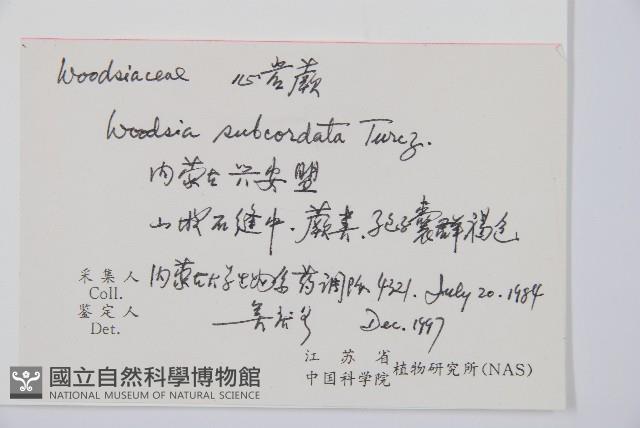 Woodsiaceae 心岩蕨
Woodsia subcordata Turcz.
内蒙古兴安盟
山坡石缝中.蕨类.孢子囊群褐色
采集人 内蒙古大学生物系药调队 4321. July 20. 1984
Coll.
鉴定人
Det. Dec. 1997
江苏省
中国科学院 植物研究所(NAS)
國立自然科學博物館
NATIONAL MUSEUM OF NATURAL SCIENCE